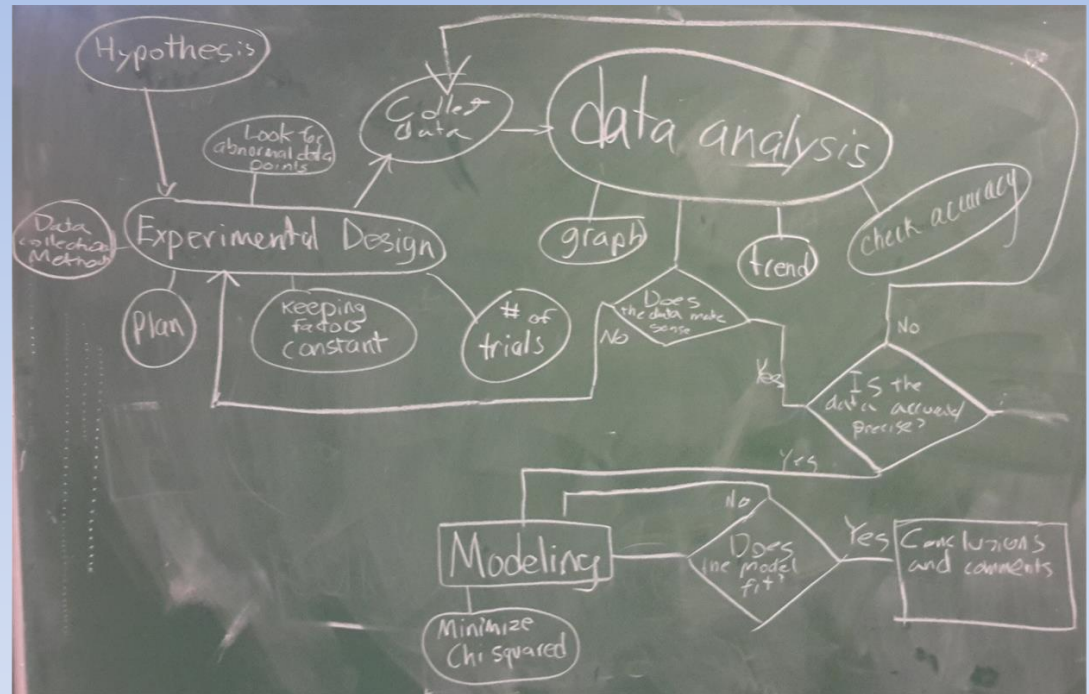 Hypothesis
Collect
data
data analysis
Look for
abnormal data
points
Data
collection
Methods
Experimental Design
graph
trend
check accuracy
Plan
Keeping
factors
constant
# of
trials
Does
the data make
sense
No
Yes
No
Is the
data accurate/
precise?
Yes
No
Modeling
Does
the model
fit?
Yes
Conclusions
and comments
Minimize
Chi squared